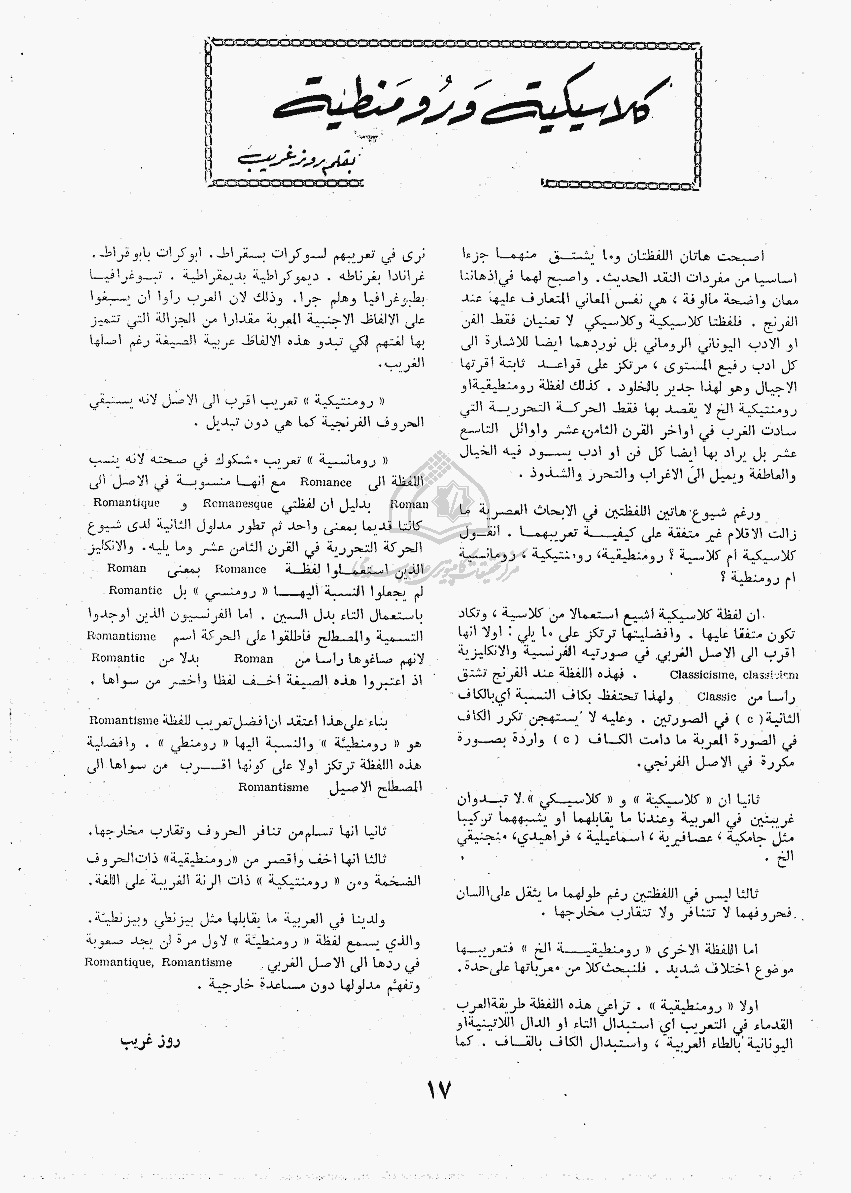 كلاسيكية ورومنطية
بقلم روز غريب
اصبحت هاتان اللفظتان وما يشتق منهما جزءا
اساسيا من مفردات النقد الحديث. واصبح لهما في اذهاننا
معان واضحة مألوفة ، هي نفس المعاني المتعارف عليها عند
الفرنج . فلفظتا كلاسيكية وكلاسيكي لا تعنيان فقط الفن
او الادب اليوناني الروماني بل نوردهما ايضا للاشارة الى
كل ادب رفيع المستوى ، مرتكز على قواعد ثابتة اقرتها
الاجيال وهو لهذا جدير بالخلود . كذلك لفظة رومنطيقية او
رومنتيكية الخ لا يقصد بها فقط الحركة التحررية التي
سادت الغرب في اواخر القرن الثامن عشر واوائل التاسع
عشر بل يراد بها ايضا كل فن او ادب يسود فيه الخيال
والعاطفة ويميل الى الاغراب والتحرر والشذوذ .
ورغم شيوع هاتين اللفظتين في الابحاث العصرية ما
زالت الاقلام غير متفقة على كيفية تعريبهما . انقول
كلاسيكية ام كلاسية ؟ رومنطيقية، رومنتيكية ، رومانسية
ام رومنطية ؟
ان لفظة كلاسيكية اشيع استعمالا من كلاسية ، وتكاد
تكون متفقا عليها . وافضليتها ترتكز على ما يلي : اولا انها
اقرب الى الاصل الغربي في صورتيه الفرنسية والانكليزية
Classicisme, classicism . فهذه اللفظة عند الفرنج تشتق
رأسا من Classic ولهذا تحتفظ بكاف النسبة أي بالكاف
الثانية ( c ) في الصورتين . وعليه لا يستهجن تكرر الكاف
في الصورة المعربة ما دامت الكاف ( c ) واردة بصورة
مكررة في الاصل الفرنجي.
ثانيا ان « كلاسيكية » و « كلاسيكي » لا تبدوان
غريبتين في العربية وعندنا ما يقابلهما او يشبههما تركيبا
مثل جامكية ، عصافيرية ، اسماعيلية ، فراهيدي، منجنيقي
الخ .
ثالثا ليس في اللفظتين رغم طولهما ما يثقل على اللسان
فحروفهما لا تتنافر ولا تتقارب مخارجها .
اما اللفظة الاخرى « رومنطيقية الخ » فتعريبها
موضوع اختلاف شديد . فلنبحث كلا من معرباتها على حدة.
اولا « رومنطيقية » . تراعي هذه اللفظة طريقة العرب
القدماء في التعريب أي استبدال التاء او الدال اللاتينية او
اليونانية بالطاء العربية ، واستبدال الكاف بالقاف . كما
نرى في تعريبهم لسوكرات بسقراط. ابوكرات بابوقراط.
غرانادا بغرناطه . ديموكراطية بديمقراطية . تبوغرافيا
بطبوغرافيا وهلم جرا. وذلك لان العرب رأوا ان يسبغوا
على الالفاظ الاجنبية المعربة مقدارا من الجزالة التي تتميز
بها لغتهم لكي تبدو هذه الالفاظ عربية الصيغة رغم اصلها
الغريب.
« رومنتيكية » تعريب اقرب الى الاصل لانه يستبقي
الحروف الفرنجية كما هي دون تبديل .
« رومانسية » تعريب مشكوك في صحته لانه ينسب
اللفظة الى Romance مع انها منسوبة في الاصل الى
Roman بدليل ان لفظتي Romanesque و Romantique
كانتا قديما بمعنى واحد ثم تطور مدلول الثانية لدى شيوع
الحركة التحررية في القرن الثامن عشر وما يليه. والانكليز
الذين استعملوا لفظة Romance بمعنى Roman
لم يجعلوا النسبة اليها « رومنسي » بل Romantic
باستعمال التاء بدل السين . اما الفرنسيون الذين اوجدوا
التسمية والمصطلح فأطلقوا على الحركة اسم Romantisme
لانهم صاغوها رأسا من Roman بدلا من Romantic
اذ اعتبروا هذه الصيغة أخف لفظا واخصر من سواها .
بناء على هذا اعتقد ان افضل تعريب للفظة Romantisme
هو « رومنطية » والنسبة اليها « رومنطي » . وافضلية
هذه اللفظة ترتكز اولا على كونها اقرب من سواها الى
المصطلح الاصيل Romantisme
ثانيا انها تسلم من تنافر الحروف وتقارب مخارجها.
ثالثا انها أخف واقصر من «رومنطيقية» ذات الحروف
الضخمة ومن « رومنتيكية » ذات الرنة الغريبة على اللغة.
ولدينا في العربية ما يقابلها مثل بيزنطي وبيزنطية.
والذي يسمع لفظة « رومنطية » لاول مرة لن يجد صعوبة
في ردها الى الاصل الغربي. Romantique, Romantisme
وتفهم مدلولها دون مساعدة خارجية .
روز غريب
١٧